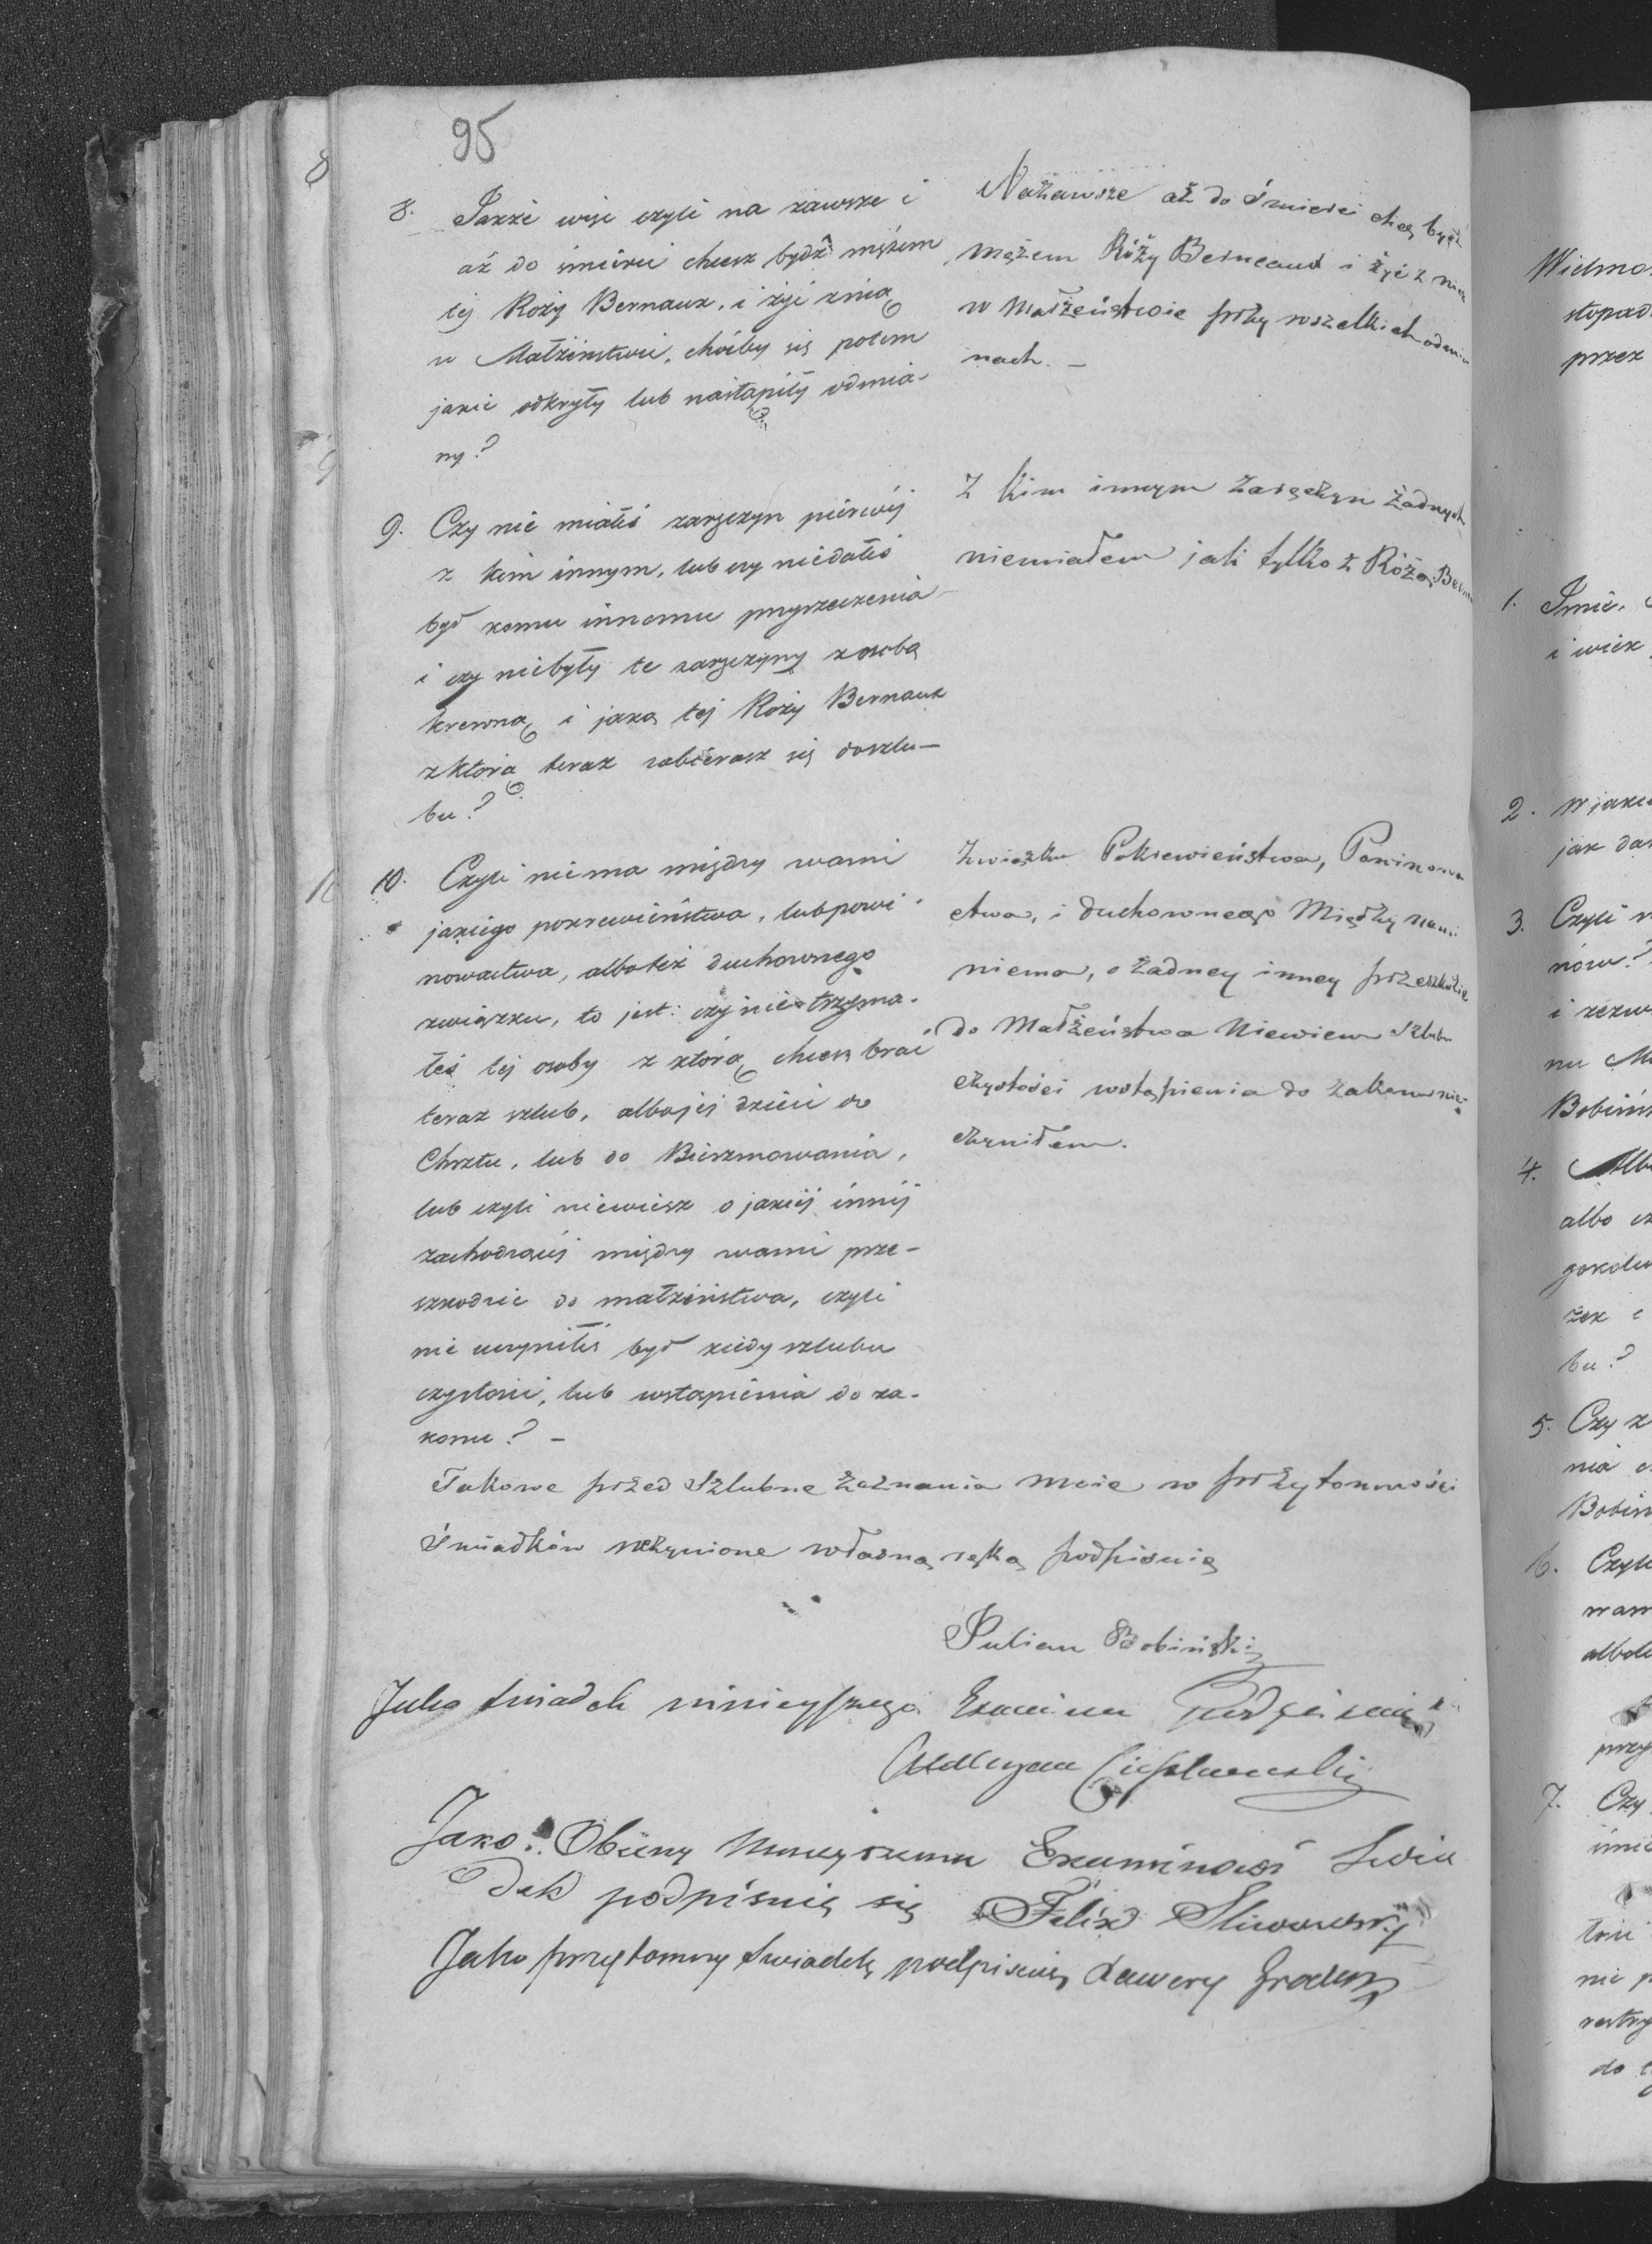 95
8. Także więc czyli na zawsze i
aż do śmierci chcesz bydź mężem
tej Roży Bernaux, i żyć znią
w Małżeństwie, choćby się potem
jakie odkryły lub nastąpiły odmia-
ny?
Nazawsze aż do śmierci chcę być
mężem Róży Berneaud i żyć z nią
w Małżeństwie przy wszelkich odmia
nach. —
9. Czy nie miałeś zaręczyn pierwéj
z kim innym, lub czy niedałeś
był komu innemu przyrzeczenia
i czy niebyły te zaręczyny z osobą
krewną i jaką tej Roży Bernaux
z którą teraz zabierasz się doszlu-
bu?
Z kim innym zaręczyn żadnych
niemiałem jak tylko z Różą Bern
10. Czyli niema między wami
jakiego pokrewieństwa, lub powi-
nowactwa, albo też duchownego
związku, to jest: czy nie trzyma-
łeś tej osoby z którą chcesz brać
teraz szlub, albo jej dzieci do
Chrztu, lub do Bierzmowania,
lub czyli niewiesz o jakiéj innéj
zachodzącéj między wami prze-
szkodzie do małżeństwa, czyli
nie uczyniłeś był kiedy szlubu
czystości, lub wstąpienia do za-
konu? —
Związku Pokrewieństwa, Powinowa
ctwa, i duchownego Między nami
niema, o żadney inney przeszkodzie
do Małżeństwa Niewiem Szlubu
czystości wstąpienia do zakonu nie-
czyniłem.
Takowe przed Szlubne Zeznania moie w przytomności
Świadków uczynione własną ręką podpisuię
Julian Bobiński
Jako świadek ninieyszego Examinu Podpisuię
Jako Obecny Examinowi Świa
dek podpisuię się Felix Sliwowsky
Jako przytomny świadek podpisuię Xawery
Wielmo
stopad
przez
1. Imie,
i wiek
2. W jaki
jak da
3. Czyli
nów?
i zezw
nu
Bobińs
4. Alb
albo cz
gokolw
żek i
bu?
5. Czy z
nia
Bobin
6. Czyli
wam
albote
przy
7. Czy
imie
tości
nie p
restry
do t